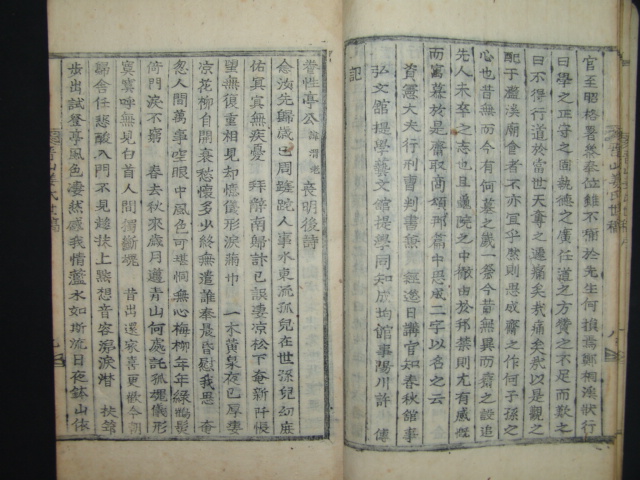 官至昭格署參奉位雖不稱於先生何損焉鄭桐溪狀行
曰學之正守之固執德之廣任道之方贊之不足而歎之
曰不得行道於當世天奪之遽痛矣哉痛矣哉以是觀之
配于灆溪廟食者不亦宜乎然則思成齋之作何子孫之
心也昔無而今有何墓之歲一祭今昔無異而齋之設追
先人未卒之志也且灆院之中撤由於邦禁則尤有感慨
而寓慕於是齋取商頌那篇中思成二字以名之云
資憲大夫行刑曹判書兼 經筵日講官知春秋館事
弘文館提學藝文館提學同知成均館事陽川許 傅
記
養性亭公 喪明後詩
念汝先歸歲已周蹉跎人事水東流孤兒在世孫兒幼底
佑冥冥無疾憂 拜辭南歸計已誤凄涼松下奄新阡悵
望無復重相見却憶儀形淚滿巾 一木黃泉夜已厚妻
凉花柳自開衰愁懷多少終無遣誰奉晨昏慰我思 奄
忽人間萬事空眼中風色可堪恫無心梅柳年年綠鶴髮
倚門淚不窮 春去秋來歲月遵青山何處託孤魂儀形
寞寞呼無見白首人間獨斷魂 昔出還家喜更歡今朝
歸舍任悲酸入門不見 抹上默想音容涕淚潸 扶筇
步出試登亭風色凄然感我情灆水如斯流日夜鉢山依